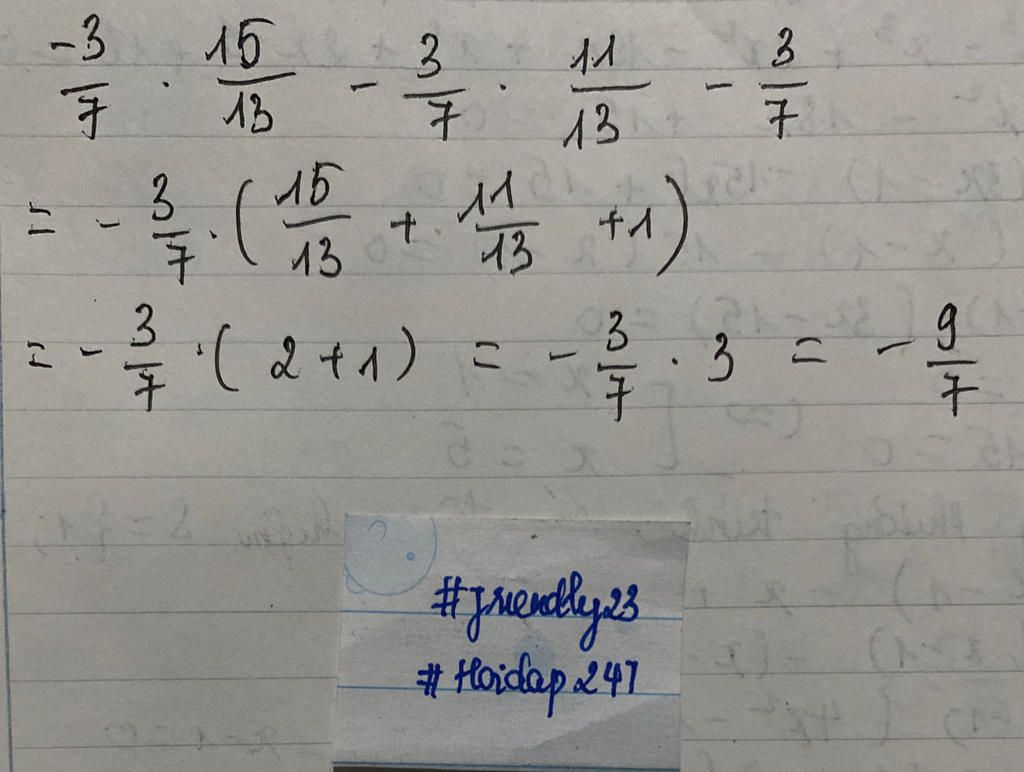 -3/7 . 15/13 - 3/7 . 11/13 - 3/7
= - 3/7 . ( 15/13 + 11/13 + 1 )
= - 3/7 . ( 2 + 1 ) = - 3/7 . 3 = - 9/7
#friendly23
#Hoidap247